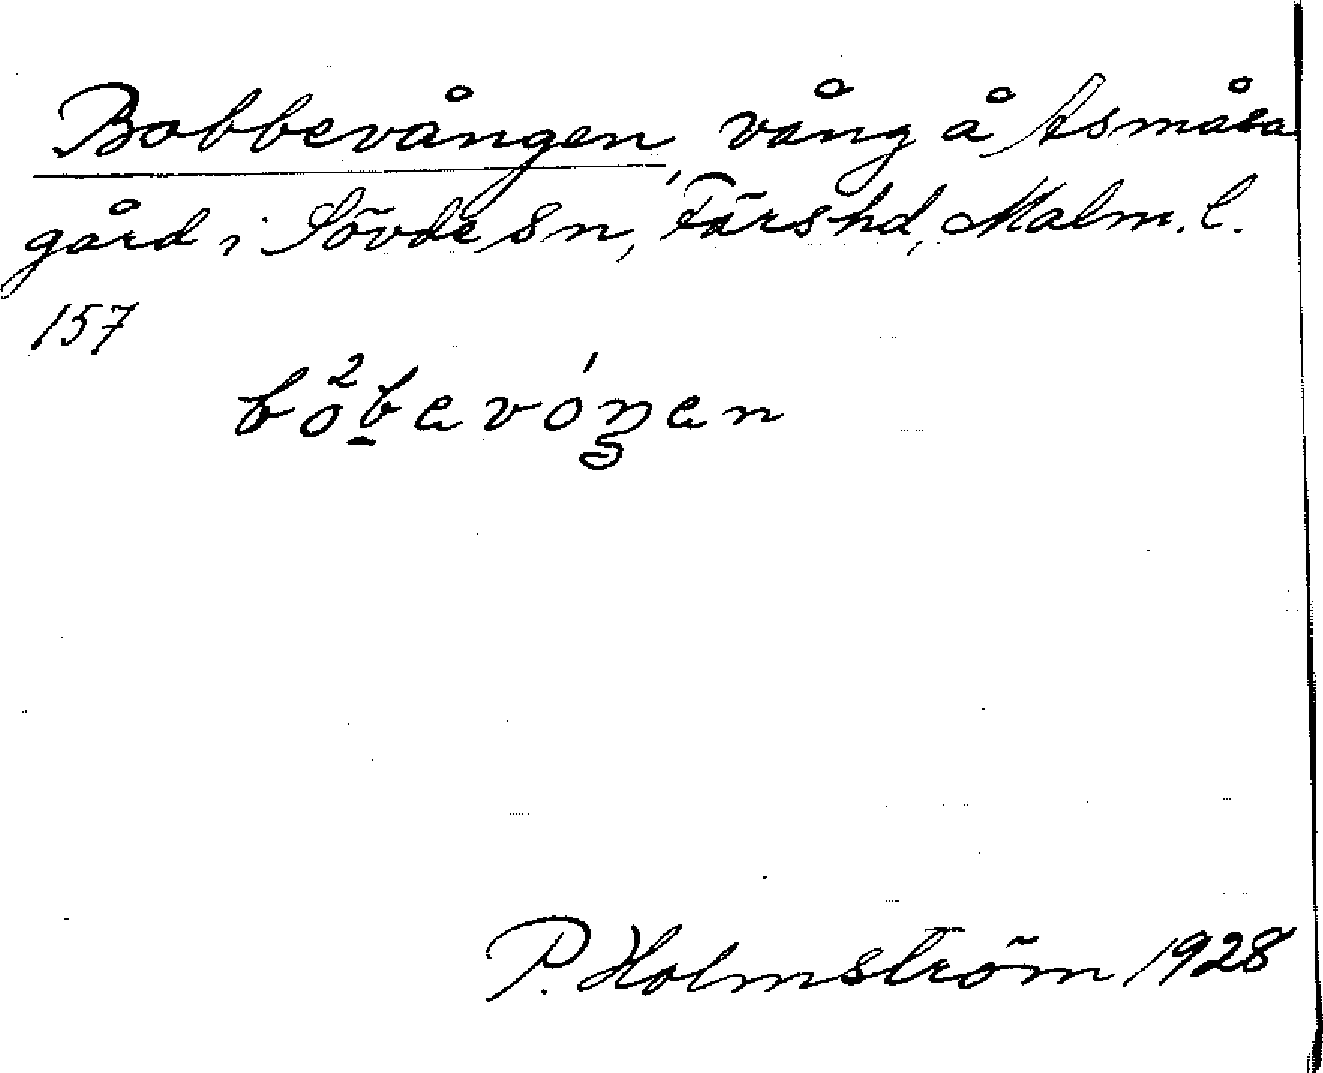 Bobbevången, vång å Åsmåsa
gård i Sövde sn, Färs hd, Malm. l.
157
bo²bavóŋan
P. Holmström 1928